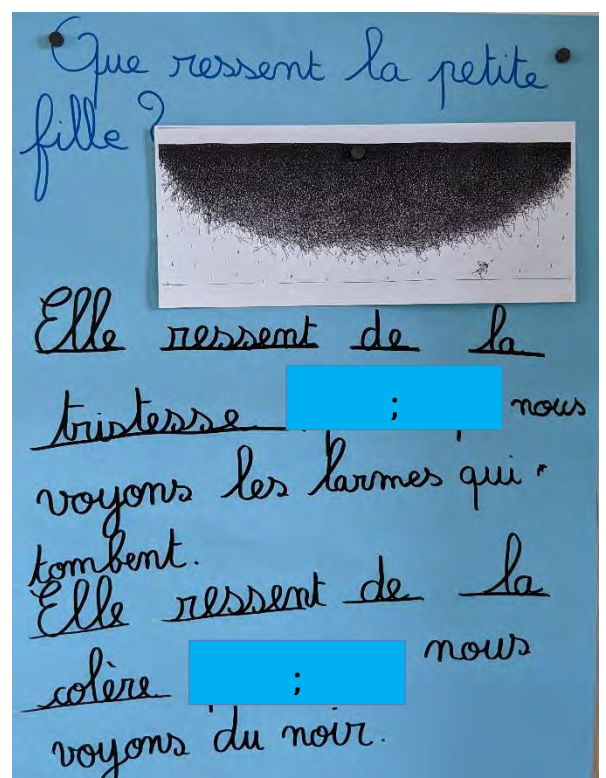 Que ressent la petite
fille ?
Elle ressent de la
tristesse ; nous
voyons les larmes qui
tombent.
Elle ressent de la
colère ; nous
voyons du noir.